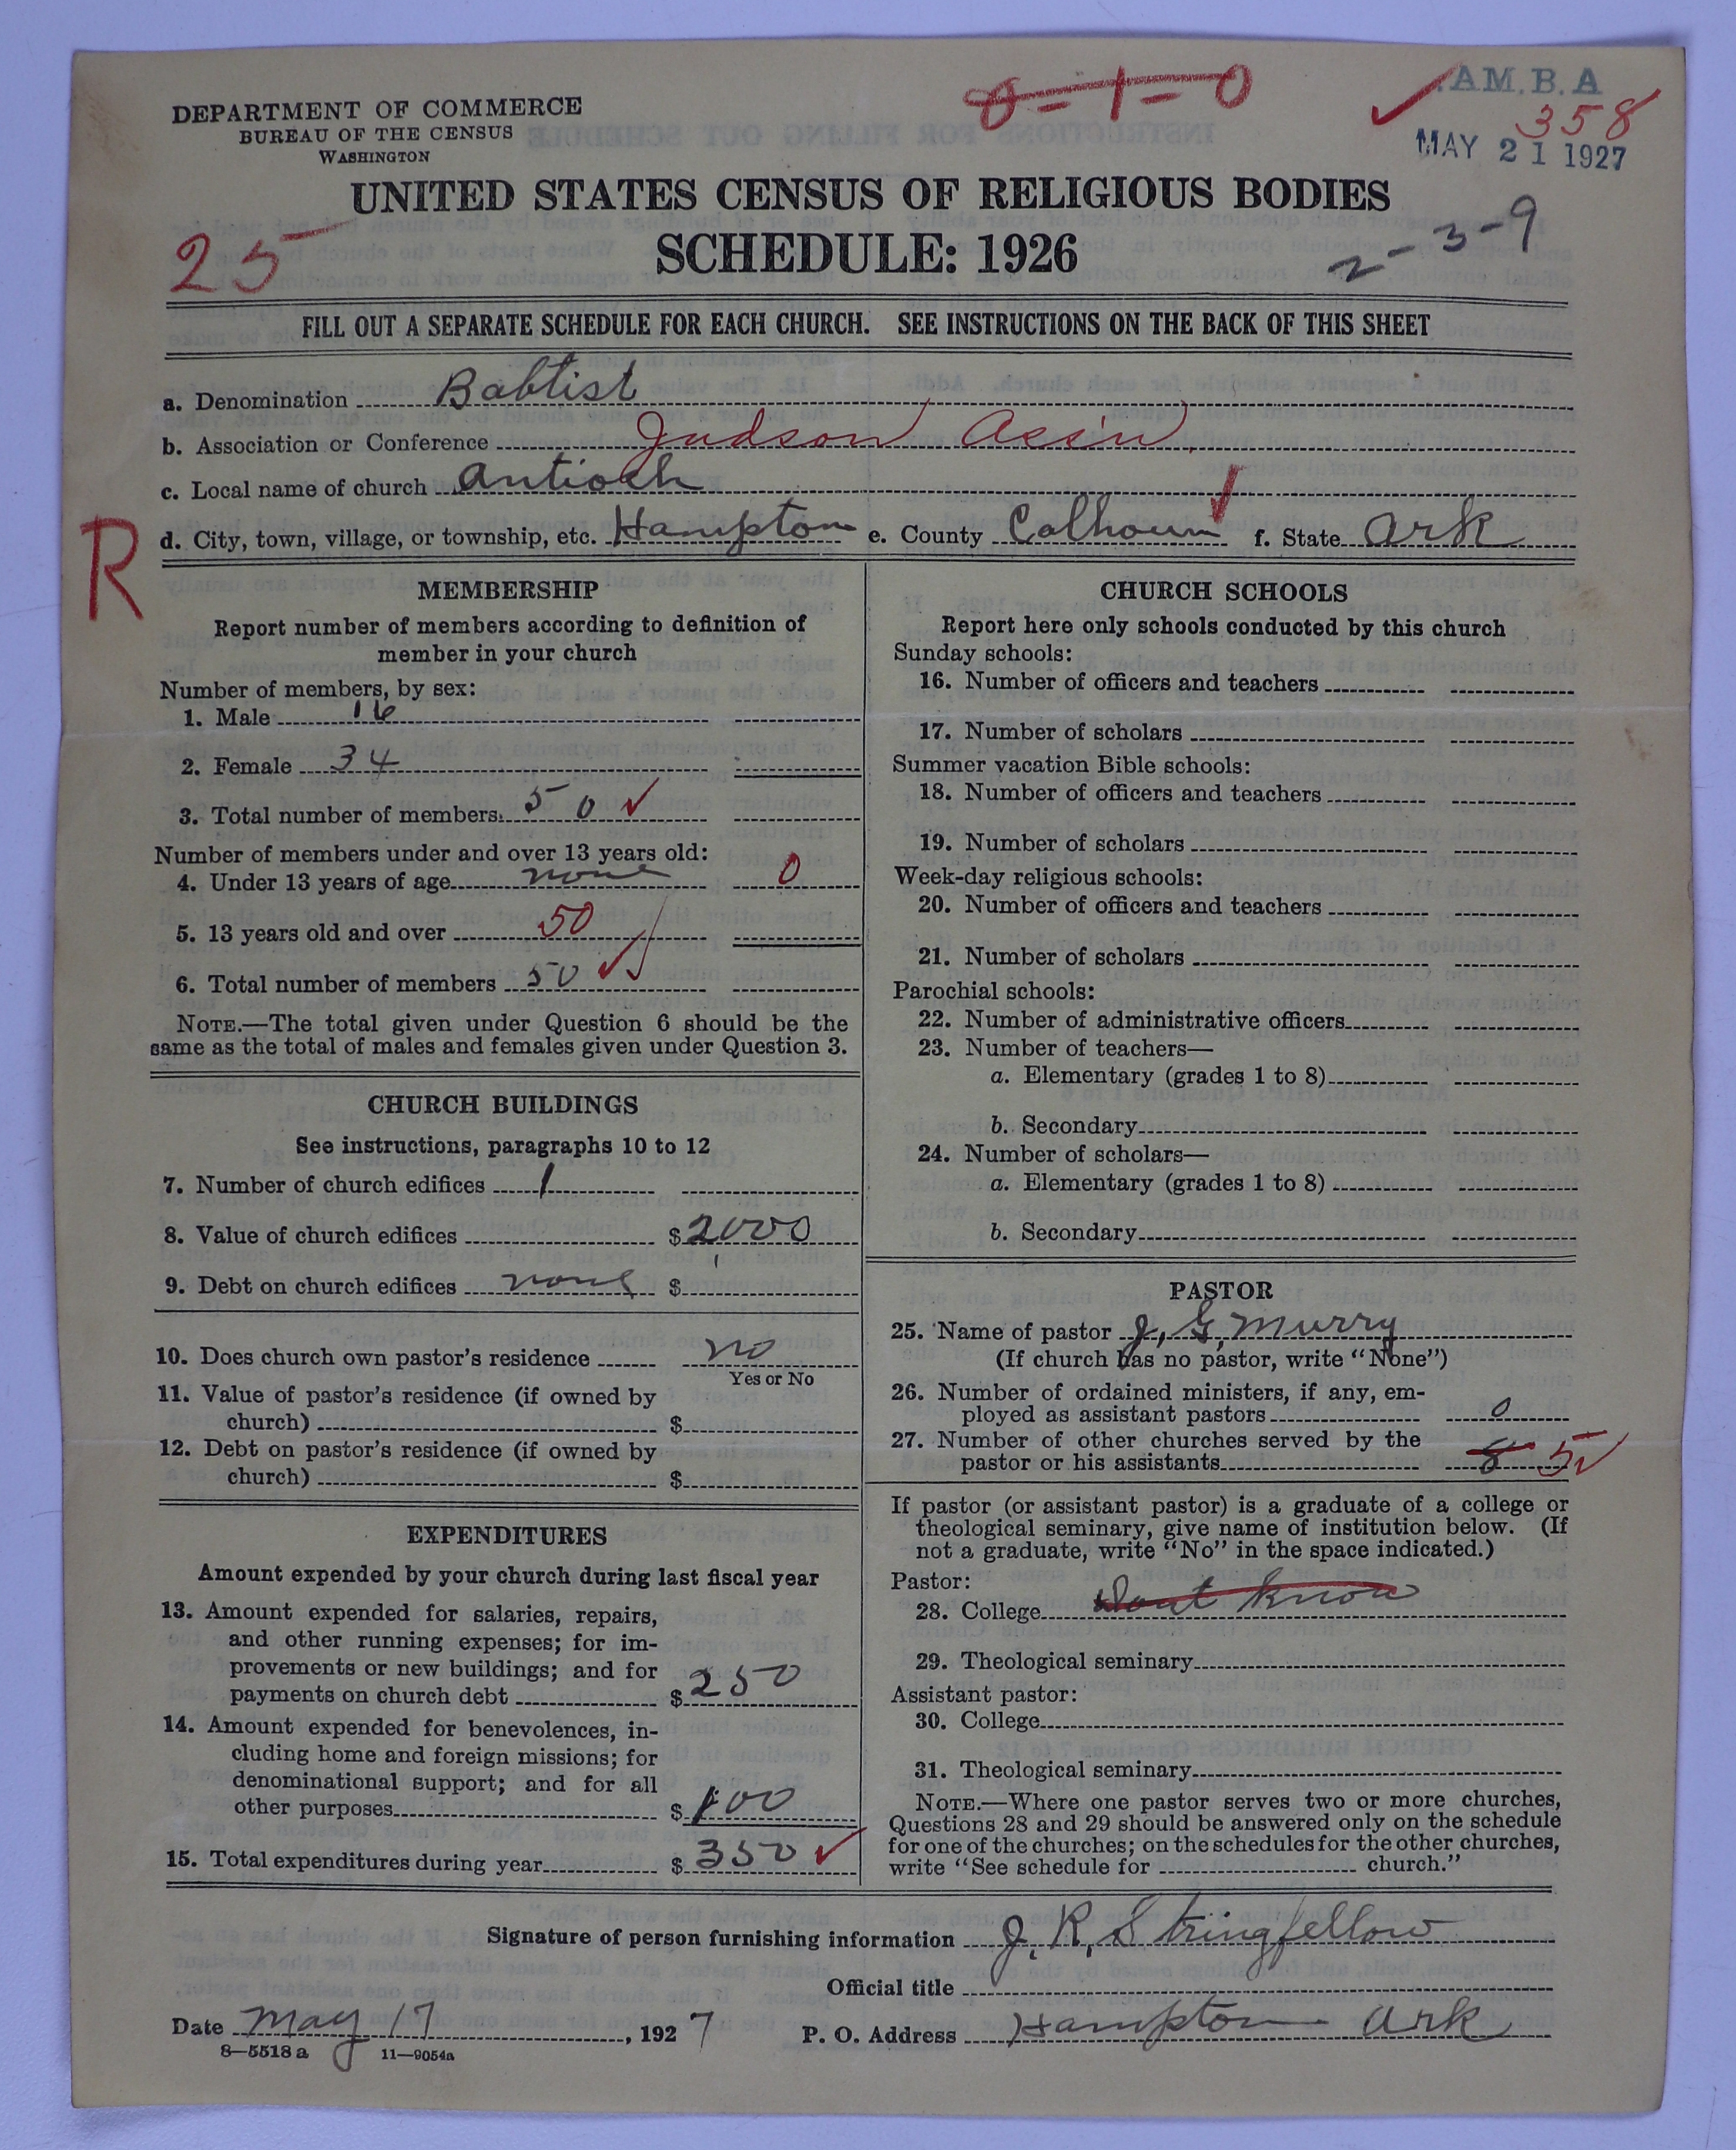 DEPARTMENT OF COMMERCE
BUREAU OF THE CENSUS
WASHINGTON
8-1-0
AM.B.A
358
MAY 21 1927
UNITED STATES CENSUS OF RELIGIOUS BODIES
SCHEDULE: 1926
25
2-3-9
FILL OUT A SEPARATE SCHEDULE FOR EACH CHURCH. SEE INSTRUCTIONS ON THE BACK OF THIS SHEET
a. Denomination Babtist
b. Association or Conference Judson Ass'n
c. Local name of church Antioch
d. City, town, village, or township, etc. Hampton e. County Calhoun f. State Ark
R
MEMBERSHIP
Report number of members according to definition of
member in your church
Number of members, by sex:
1. Male 16
2. Female 34
3. Total number of members 50
Number of members under and over 13 years old:
4. Under 13 years of age none 0
5. 13 years old and over 50
6. Total number of members 50
NOTE.—The total given under Question 6 should be the
same as the total of males and females given under Question 3.
CHURCH BUILDINGS
See instructions, paragraphs 10 to 12
7. Number of church edifices 1
8. Value of church edifices $ 2000
9. Debt on church edifices none $
10. Does church own pastor's residence no
Yes or No
11. Value of pastor's residence (if owned by
church) $
12. Debt on pastor's residence (if owned by
church) $
EXPENDITURES
Amount expended by your church during last fiscal year
13. Amount expended for salaries, repairs,
and other running expenses; for im-
provements or new buildings; and for
payments on church debt $ 250
14. Amount expended for benevolences, in-
cluding home and foreign missions; for
denominational support; and for all
other purposes $ 100
15. Total expenditures during year $ 350
CHURCH SCHOOLS
Report here only schools conducted by this church
Sunday schools:
16. Number of officers and teachers
17. Number of scholars
Summer vacation Bible schools:
18. Number of officers and teachers
19. Number of scholars
Week-day religious schools:
20. Number of officers and teachers
21. Number of scholars
Parochial schools:
22. Number of administrative officers
23. Number of teachers—
a. Elementary (grades 1 to 8)
b. Secondary
24. Number of scholars—
a. Elementary (grades 1 to 8)
b. Secondary
PASTOR
25. Name of pastor J. G. Murry
(If church has no pastor, write "None")
26. Number of ordained ministers, if any, em-
ployed as assistant pastors 0
27. Number of other churches served by the
pastor or his assistants 8 5
If pastor (or assistant pastor) is a graduate of a college or
theological seminary, give name of institution below. (If
not a graduate, write "No" in the space indicated.)
Pastor:
28. College Dont know
29. Theological seminary
Assistant pastor:
30. College
31. Theological seminary
NOTE.—Where one pastor serves two or more churches,
Questions 28 and 29 should be answered only on the schedule
for one of the churches; on the schedules for the other churches,
write "See schedule for church."
Signature of person furnishing information J. R. Stringfellow
Official title
Date May 17, 1927 P. O. Address Hampton Ark
8—5518a 11—9054a